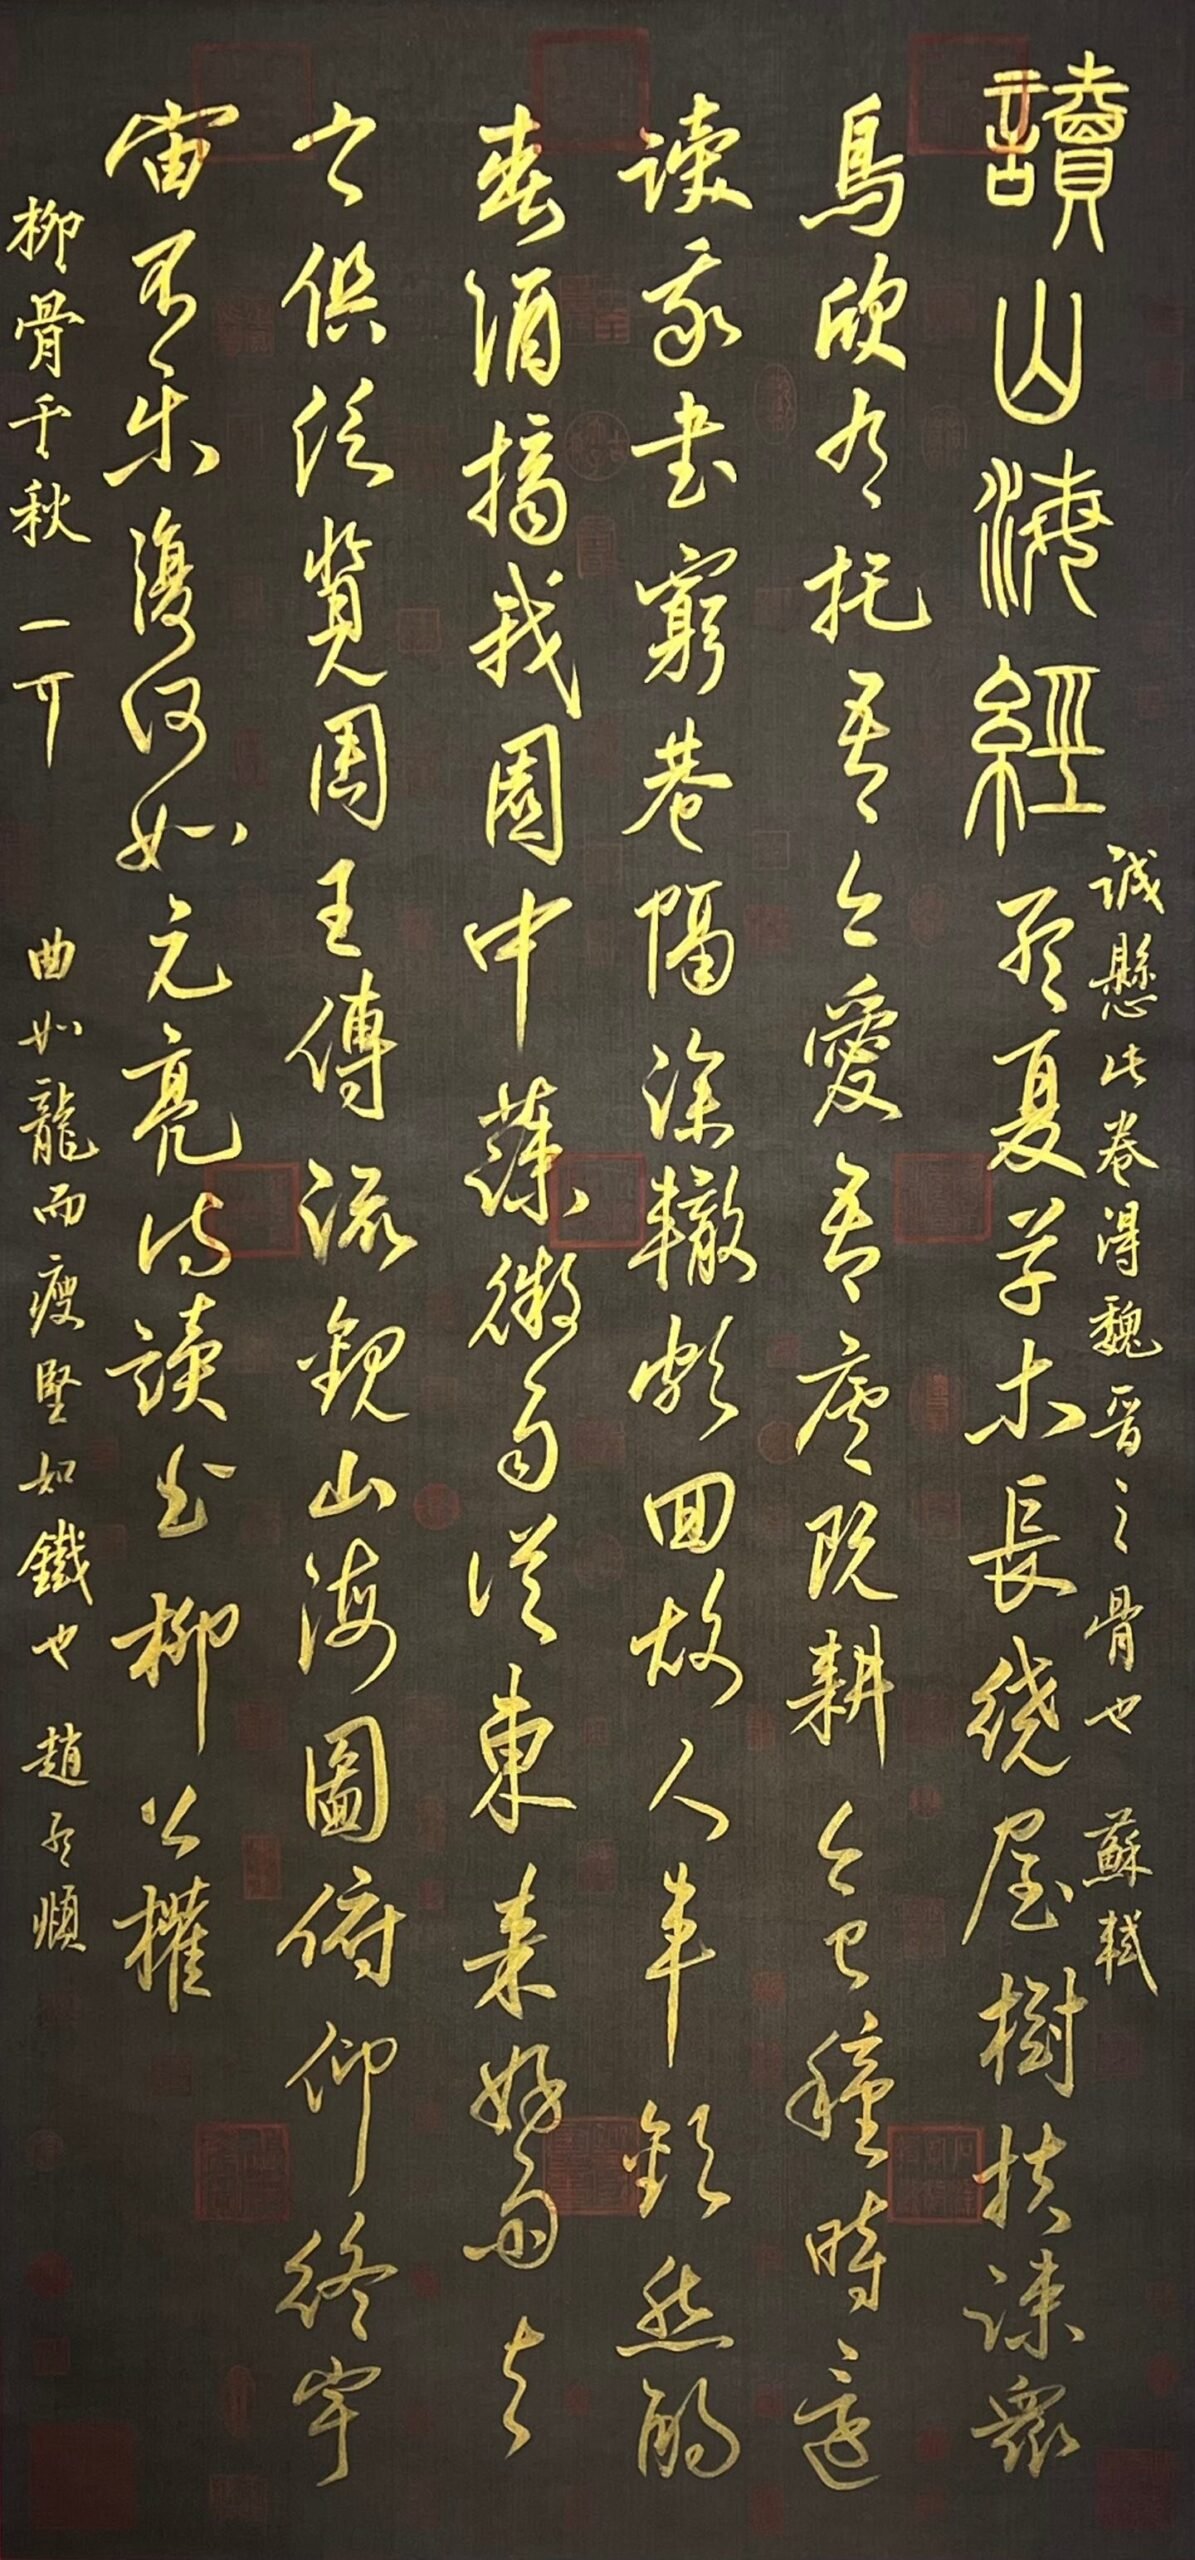 誠懸此卷得魏晋之骨也 蘇軾
讀山海經 孟夏草木長绕屋樹扶踈衆
鳥欣有托吾亦愛吾庐既耕亦已種時還
读我书窮巷隔深轍頗回故人車歡然酌
春酒摘我園中蔬微雨從東来好風与
之俱泛覽周王傳流觀山海圖俯仰終宇
宙不乐復何如元亮诗讀 柳公權
柳骨千秋 曲如龍而瘦堅如鐵也 趙孟頫